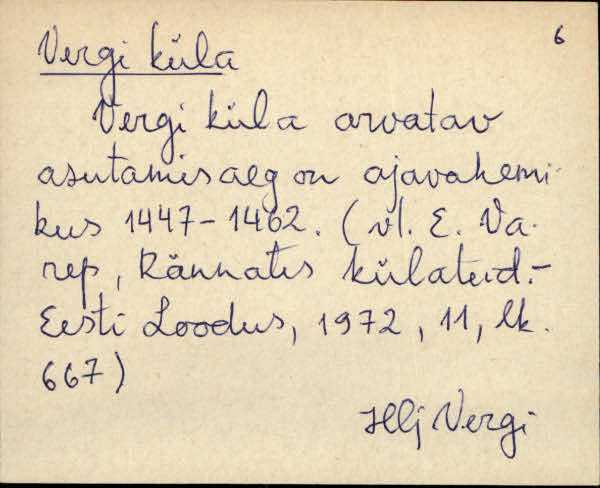 6
Vergi küla
Vergi küla arvatav
asutamisaeg on ajavahemi-
kus 1447-1462. (vl. E. Va-
rep, Rännates külateid.-
Eesti Loodus, 1972, 11, lk.
667)
Hlj Vergi